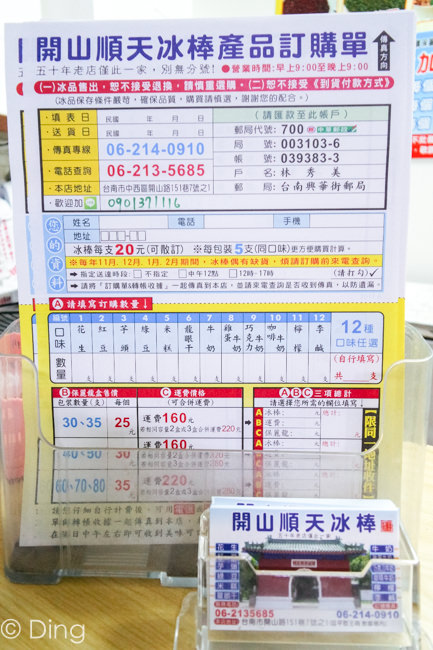 開山順天冰棒產品訂購單
傳真方向
五十年老店僅此一家，別無分號！ ●營業時間:早上9:00至晚上9:00
(一)冰品售出，恕不接受退換，請慎重選購，(二)恕不接受《到貨付款方式》
(冰品保存條件嚴苛，確保品質，購買請慎選，謝謝您的配合。)
填表日 民國 年 月 日 (請匯款至此帳戶)
送貨日 民國 年 月 日 郵局代號：700 中華郵政
傳真專線 06-214-0910 局 號：003103-6
電話查詢 06-213-5685 帳 號：039383-3
戶 名：林 秀 美
本店地址 台南市中西區開山路151巷1號之1 郵 局：台南興華街郵局
歡迎加 0901371116
您的資料
姓名 電話 手機
地址
冰棒每支20元(可散訂) ※每包裝5支(同口味)更方便購買計算。
※每年11月、12月、1月、2月期間，冰棒偶有缺貨，煩請訂購前來電查詢。
→指定送達時段：□不指定 □中午12點 □12時-17時 (請打勾)✓
→請將「訂購單&轉帳收據」一起傳真到本店，並請來電查詢是否收到傳真，以防遺漏。
A 請填寫訂購數量↓
編號 1 2 3 4 5 6 7 8 9 10 11 12
口味 花生 紅豆 芋頭 綠豆 米糕 龍眼干 牛奶 雞蛋牛奶 巧克力牛奶 咖啡牛奶 檸檬 李鹹
12種口味任選
(自行填寫)
數量 支 支 支 支 支 支 支 支 支 支 支 支
共 支
B 保麗龍盒售價 C 運費價格 A B C 三項總計
包裝數量(支) 每個 (可合併運費) 請選擇您所需的欄位填寫↓
30、35 25元 運費160元
若相同容量2盒或3盒合併運費220元
A 冰棒： 元 總計：
B 運費： 元
C 保麗龍： 元 元
40、50 30元 運費160元
60、70、80 35元 運費220元
【限同一地址收件】
開山順天冰棒
五十年老店僅此一家
花生
紅豆
芋頭
綠豆
米糕
龍眼干
牛奶
檸檬
李鹹
06-2135685
06-214-0910
台南市開山路151巷1號之1
© Ding